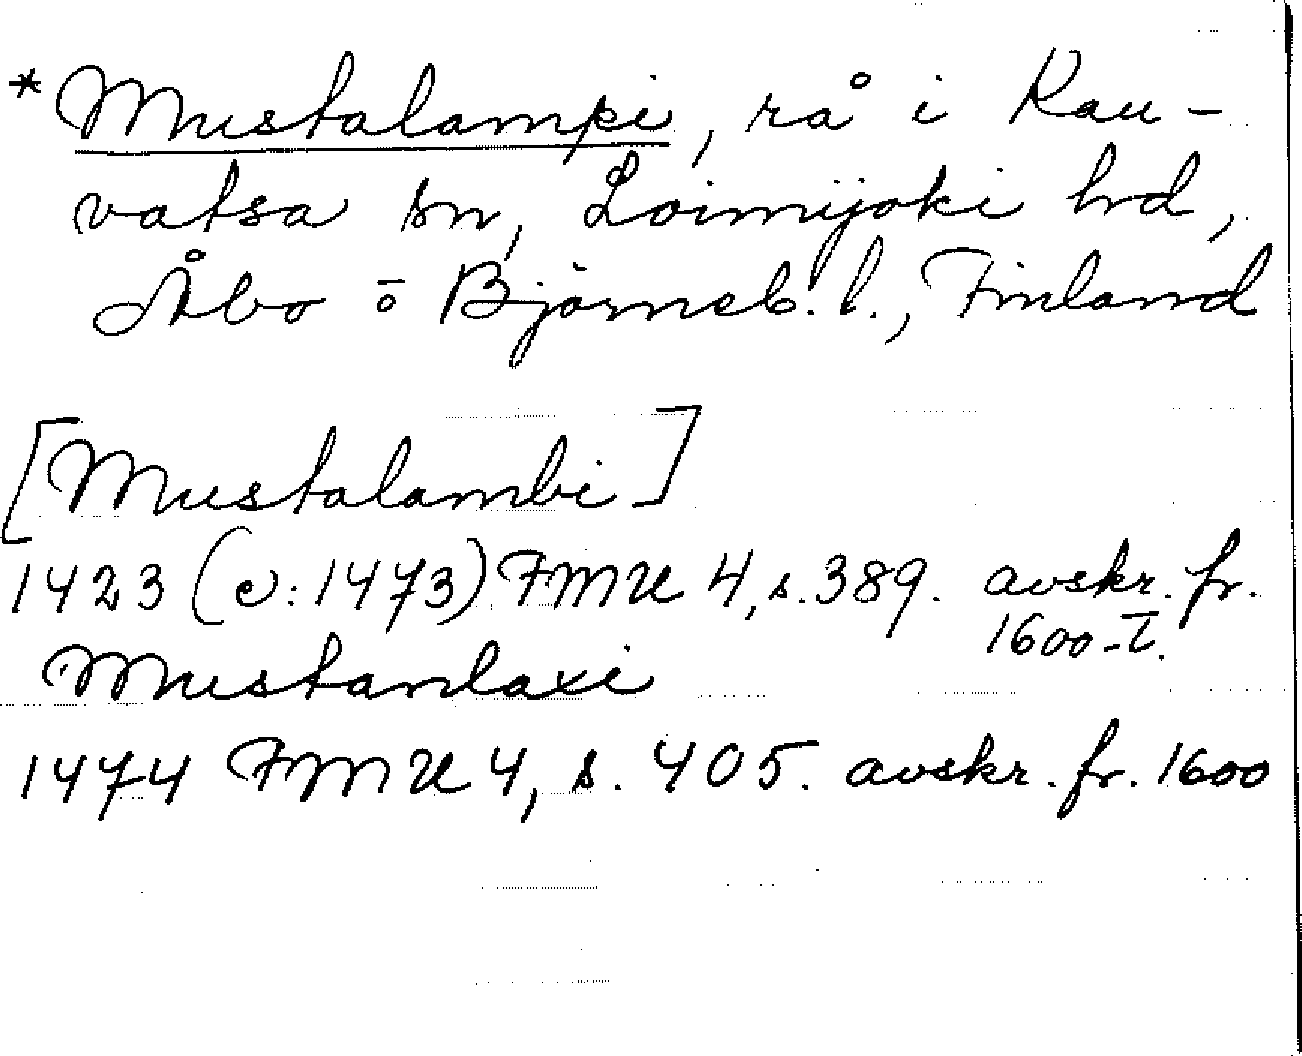 *Mustalampi, rå i Kau-
vatsa sn, Loimijoki hrd,
Åbo o Björneb. l., Finland
[Mustalambi]
1423 (o: 1473) FMU 4, s. 389. avskr. fr.
1600-t.
Mustanlaxi
1474 FMU 4, s. 405. avskr. fr. 1600